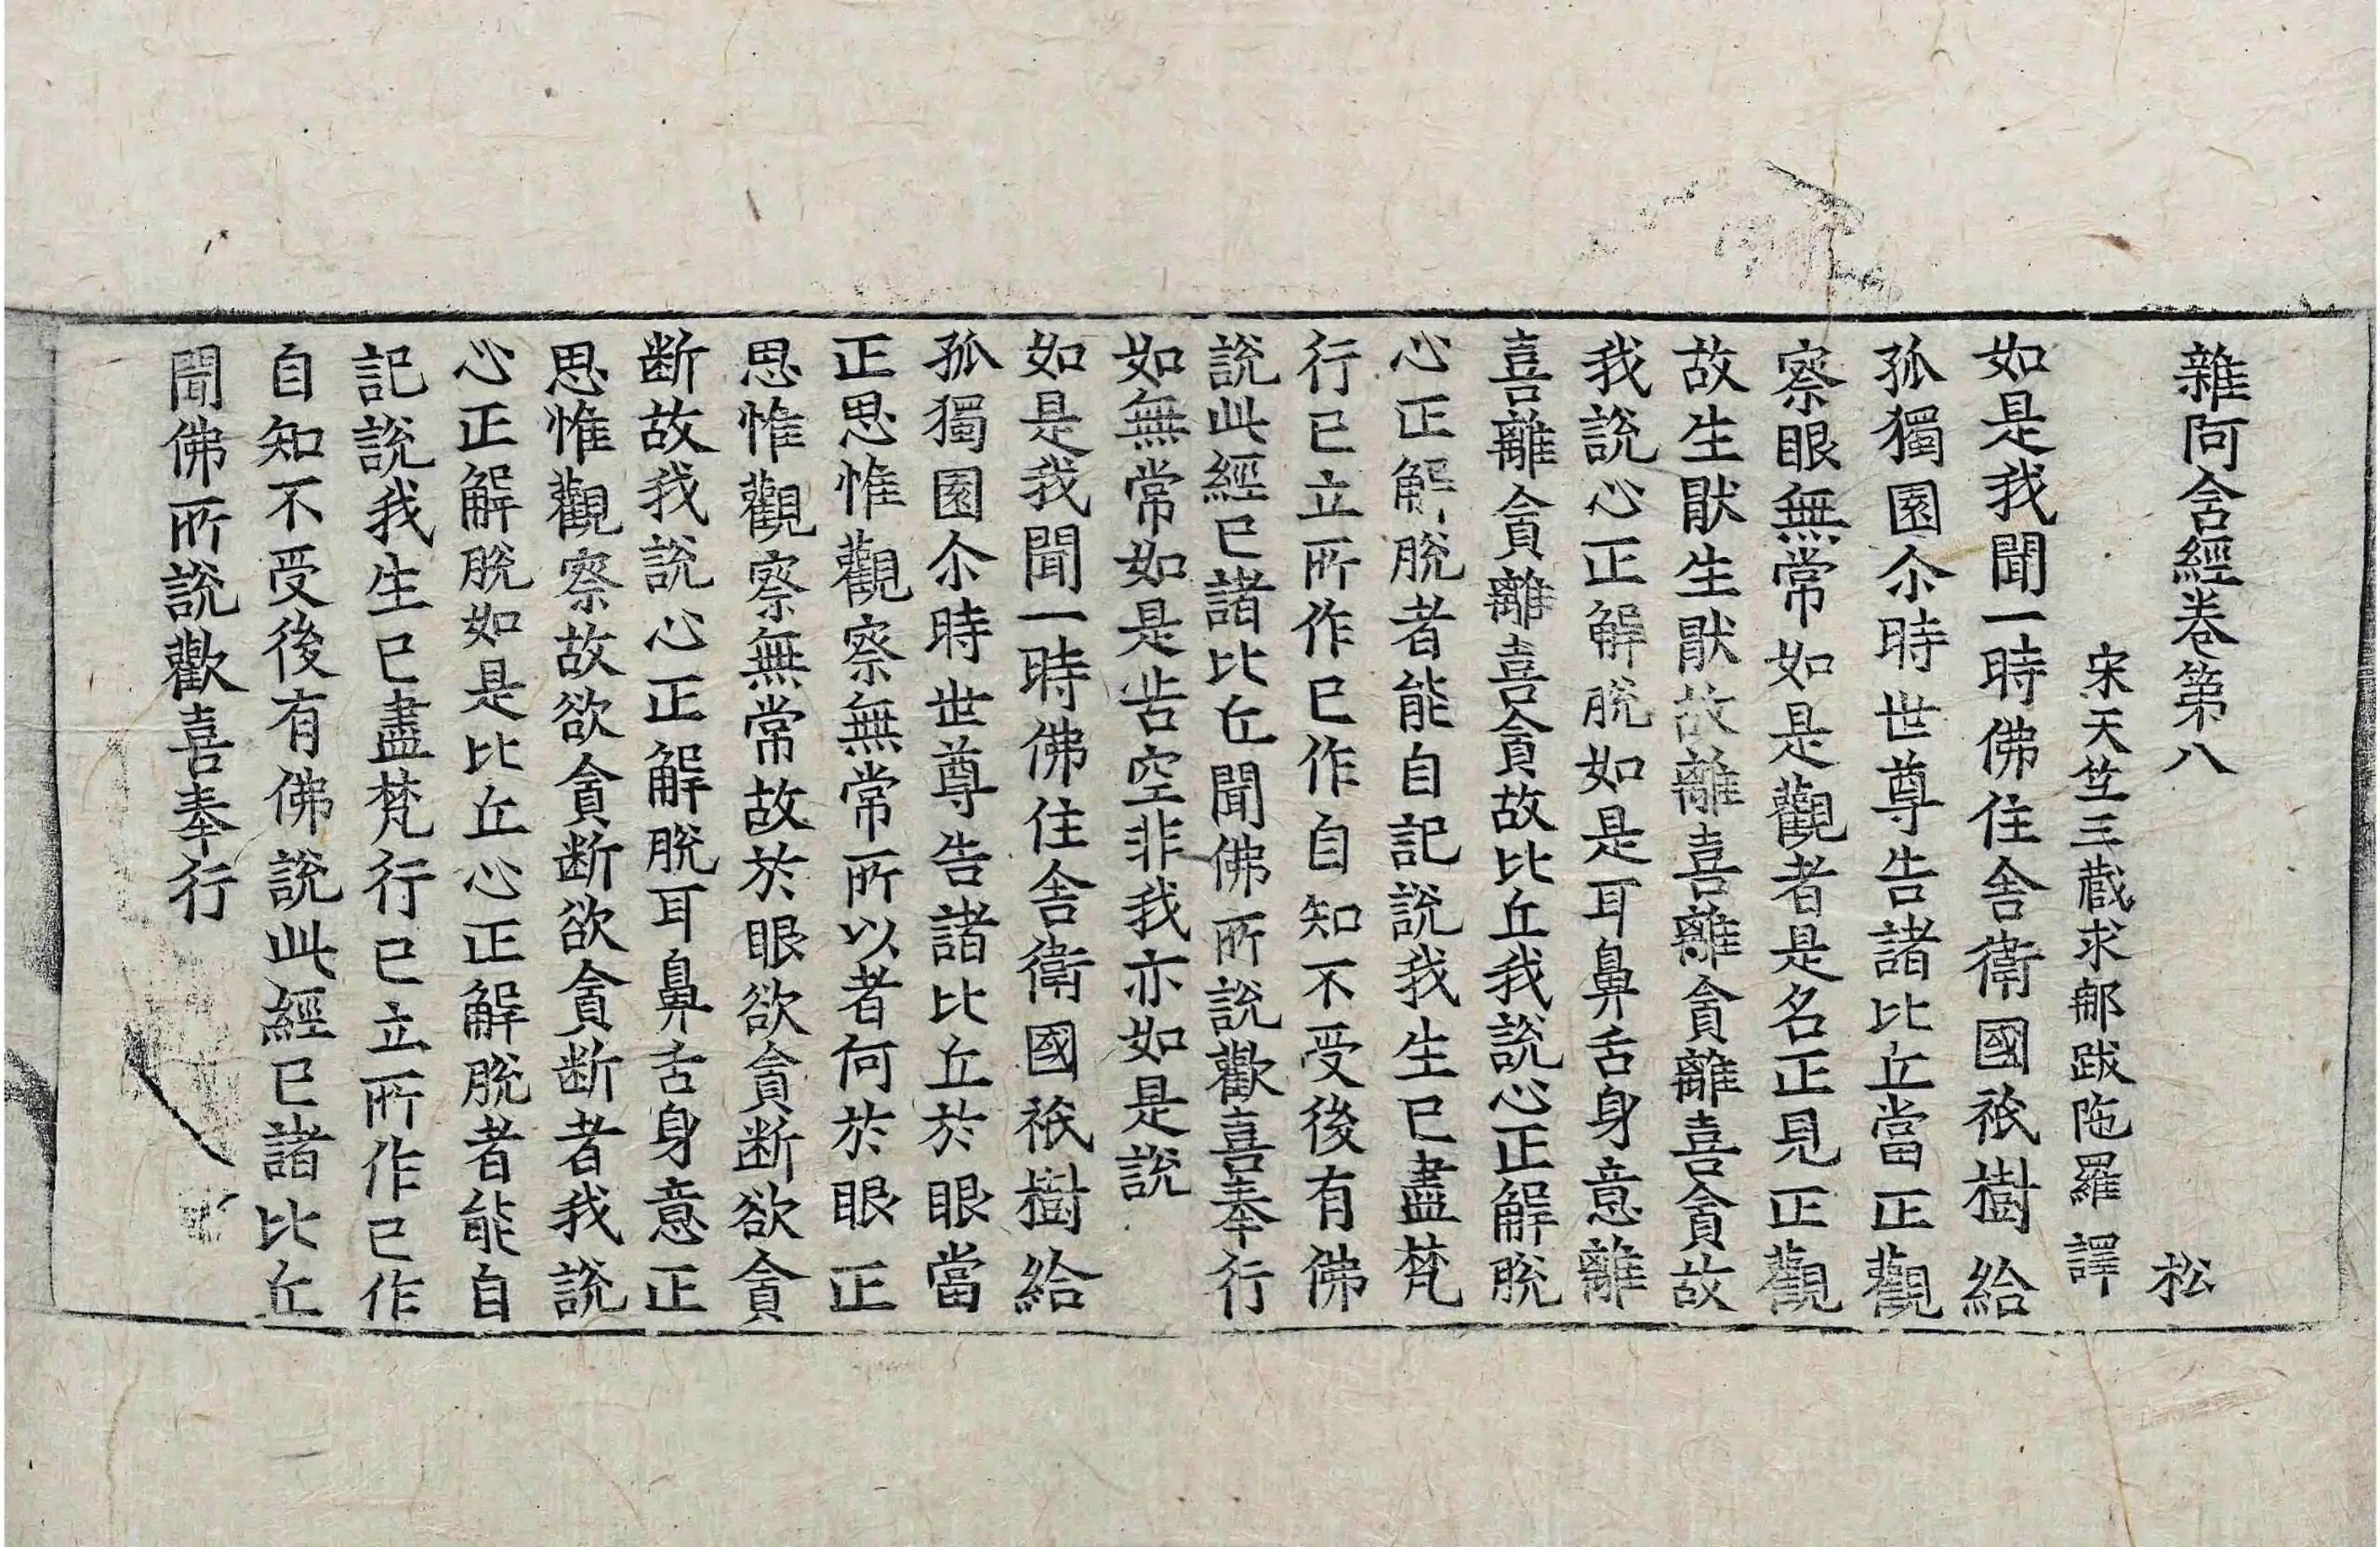 雜阿含經卷第八 松
宋天竺三藏求那跋陁羅 譯
如是我聞一時佛住舍衛國祇樹給
孤獨園尒時世尊告諸比丘當正觀
察眼無常如是觀者是名正見正觀
故生猒生猒故離喜離貪離喜貪故
我說心正解脫如是耳鼻舌身意離
喜離貪離喜貪故比丘我說心正解脫
心正解脫者能自記說我生已盡梵
行已立所作已作自知不受後有佛
說此經已諸比丘聞佛所說歡喜奉行
如無常如是苦空非我亦如是說
如是我聞一時佛住舍衛國祇樹給
孤獨園尒時世尊告諸比丘於眼當
正思惟觀察無常所以者何於眼正
思惟觀察無常故於眼欲貪断欲貪
断故我說心正解脫耳鼻舌身意正
思惟觀察故欲貪断欲貪断者我說
心正解脫如是比丘心正解脫者能自
記說我生已盡梵行已立所作已作
自知不受後有佛說此經已諸比丘
聞佛所說歡喜奉行